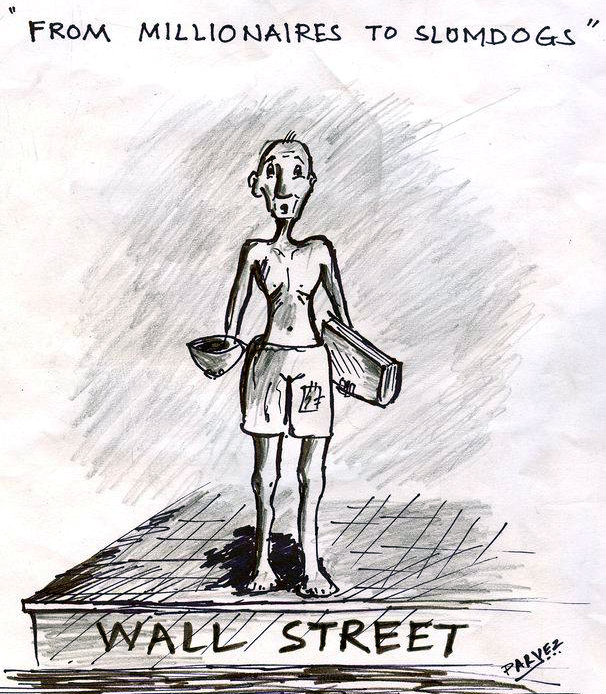 "FROM MILLIONAIRES TO SLUMDOGS"
WALL STREET
PARVEZ